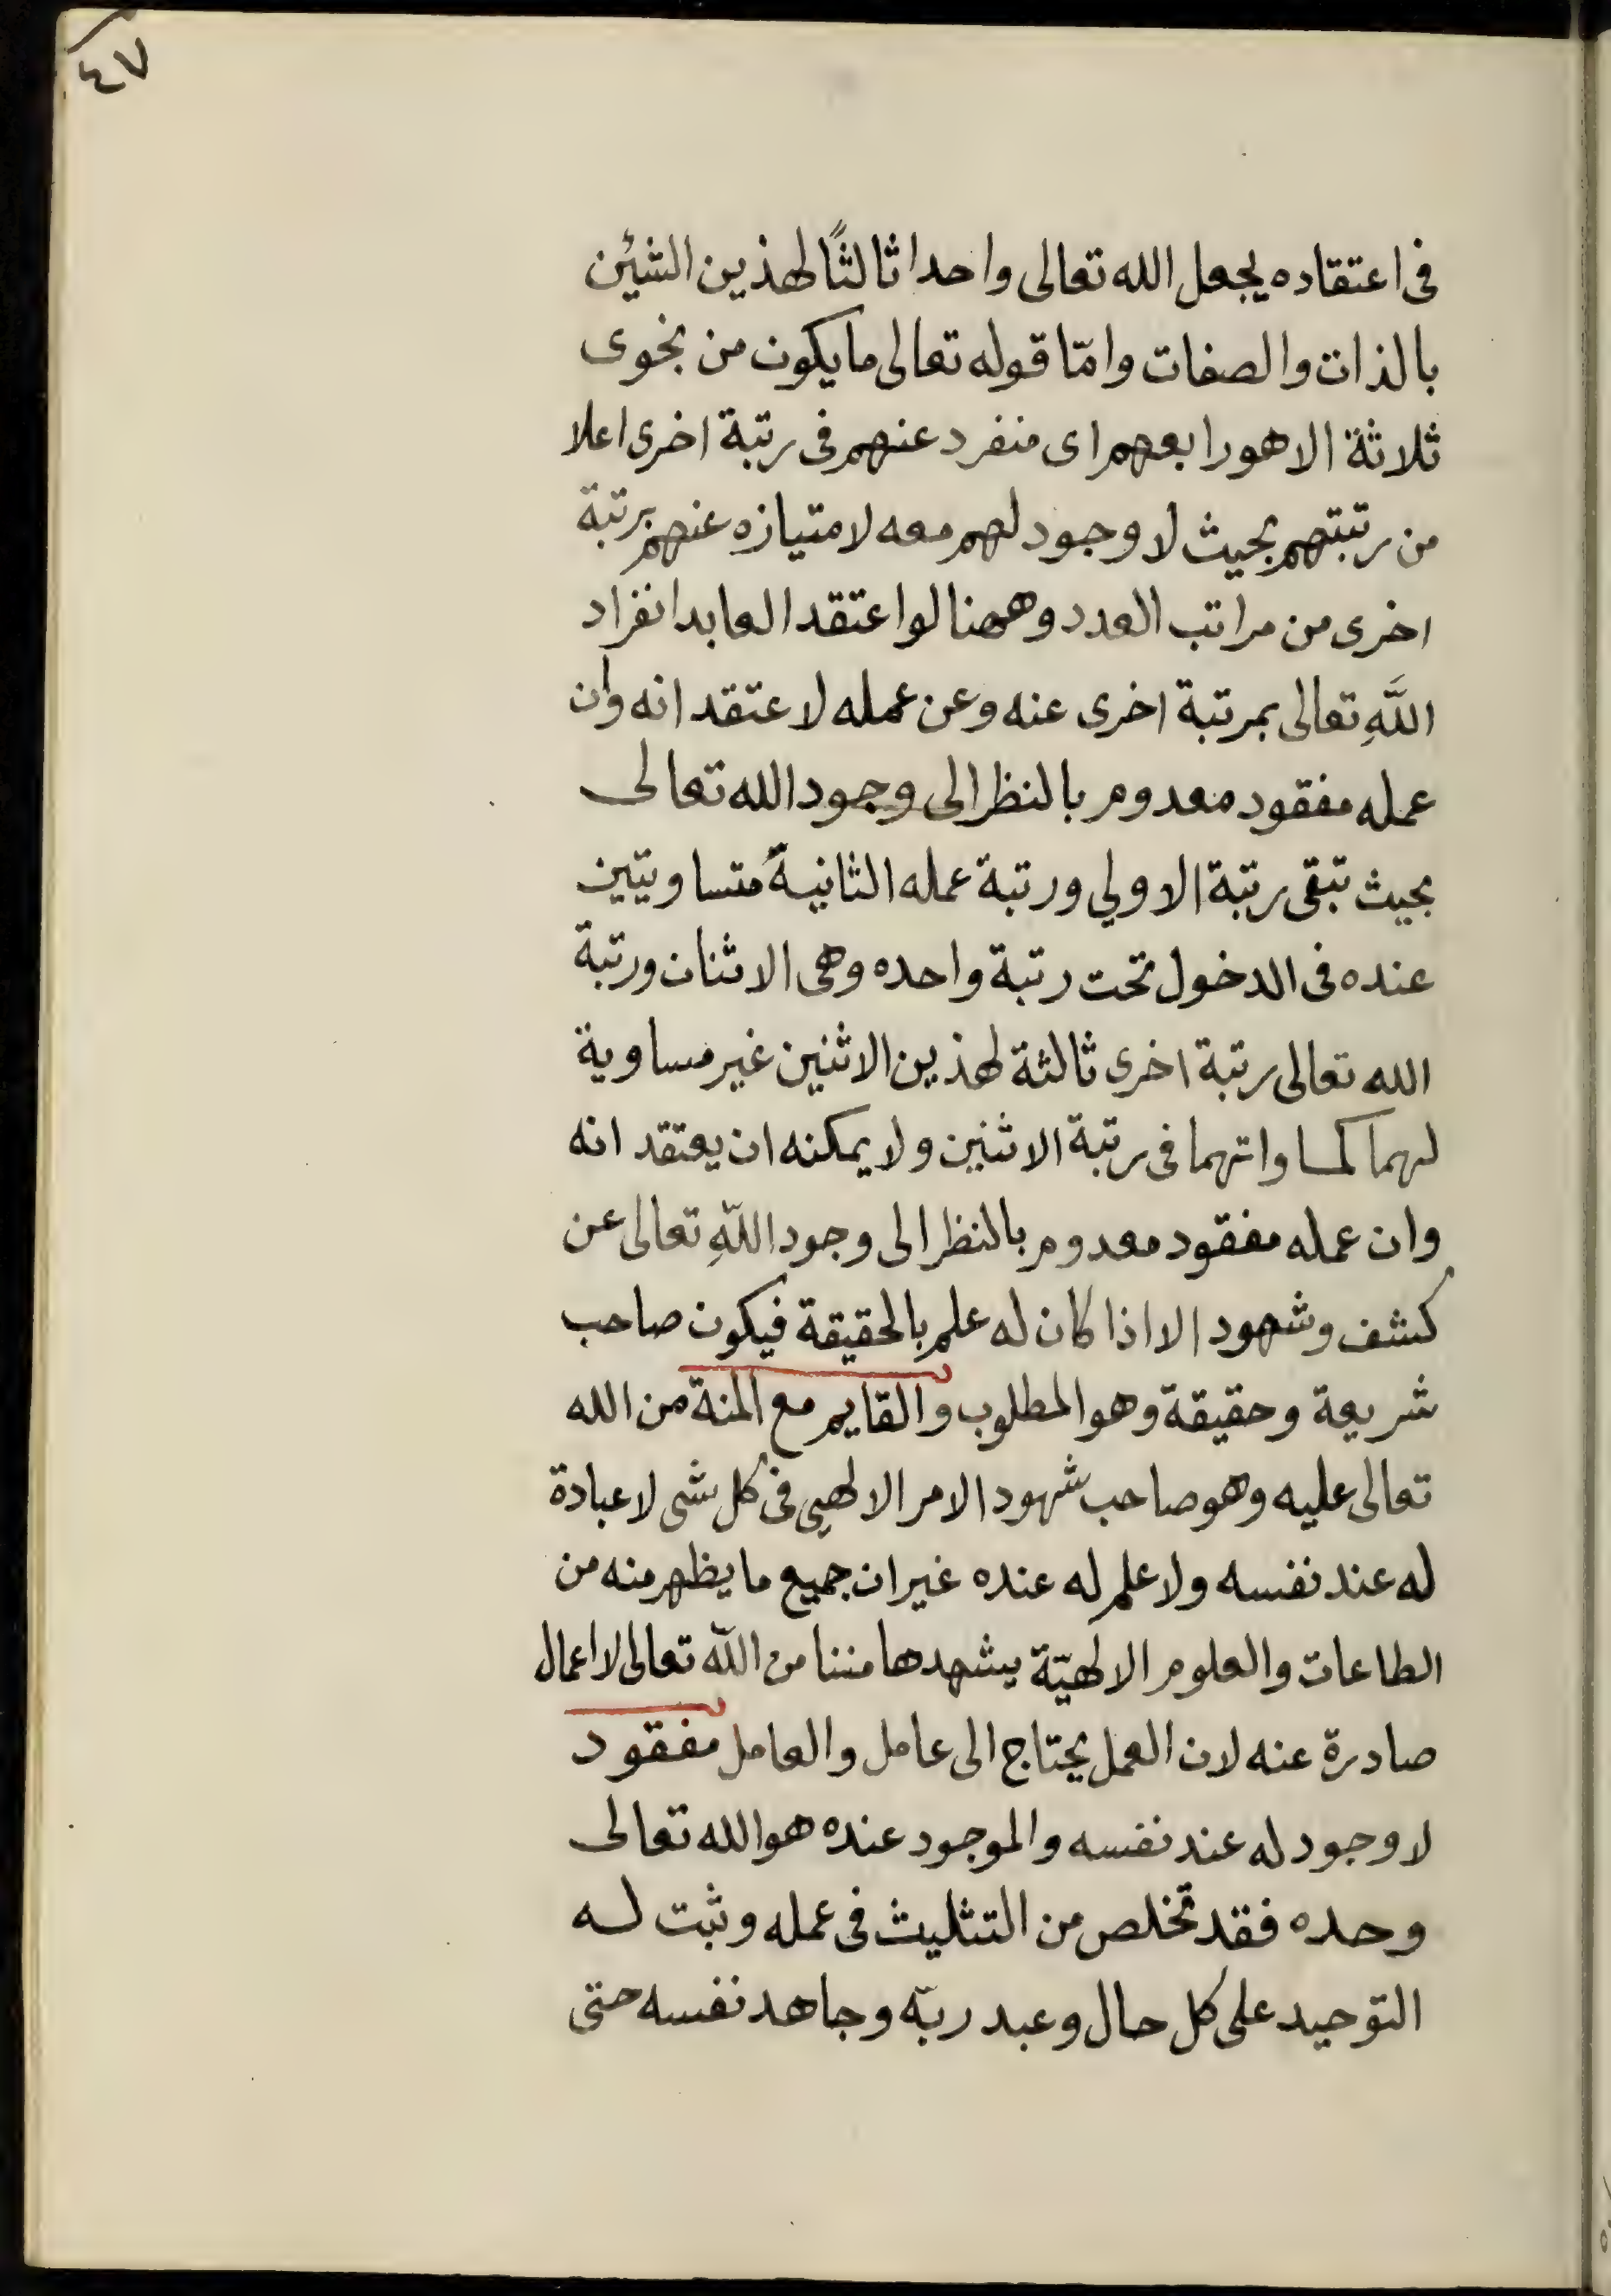 ٤٧
فى اعتقاده يجعل الله تعالى واحدا ثالثًا لهذين الشئين
بالذات والصفات وامّا قوله تعالى ما يكون من نجوى
ثلاثة الا هو رابعهم اى منفرد عنهم فى رتبة اخرى اعلا
من رتبتهم بحيث لا وجود لهم معه لامتيازه عنهم برتبة
اخرى من مراتب العدد وههنا لو اعتقد العابد انفراد
اللَّهِ تعالى بمرتبة اخرى عنه وعن عمله لاعتقد انه وان
عمله مفقود معدوم بالنظر الى وجود الله تعالى
بحيث تبقى رتبة الاولي ورتبة عمله الثانية متساويتين
عنده فى الدخول تحت رتبة واحده وهى الاثنان ورتبة
الله تعالى رتبة اخرى ثالثة لهذين الاثنين غير مساوية
لهما كمساواتهما فى رتبة الاثنين ولا يمكنه ان يعتقد انه
وان عمله مفقود معدوم بالنظر الى وجود اللّهِ تعالى عن
كشف وشهود الا اذا كان له علم بالحقيقة فيكون صاحب
شريعة وحقيقة وهو المطلوب والقايم مع المنة من الله
تعالى عليه وهو صاحب شهود الامر الالهى فى كل شى لا عبادة
له عند نفسه ولا علم له عنده غير ان جميع ما يظهر منه من
الطاعات والعلوم الالهيّة يشهدها مننا من اللّه تعالى لا اعمال
صادرة عنه لان العمل يحتاج الى عامل والعامل مفقود
لا وجود له عند نفسه والموجود عنده هو الله تعالى
وحده فقد تخلص من التثليث فى عمله وثبت له
التوحيد على كل حال وعبد ربّه وجاهد نفسه حتى